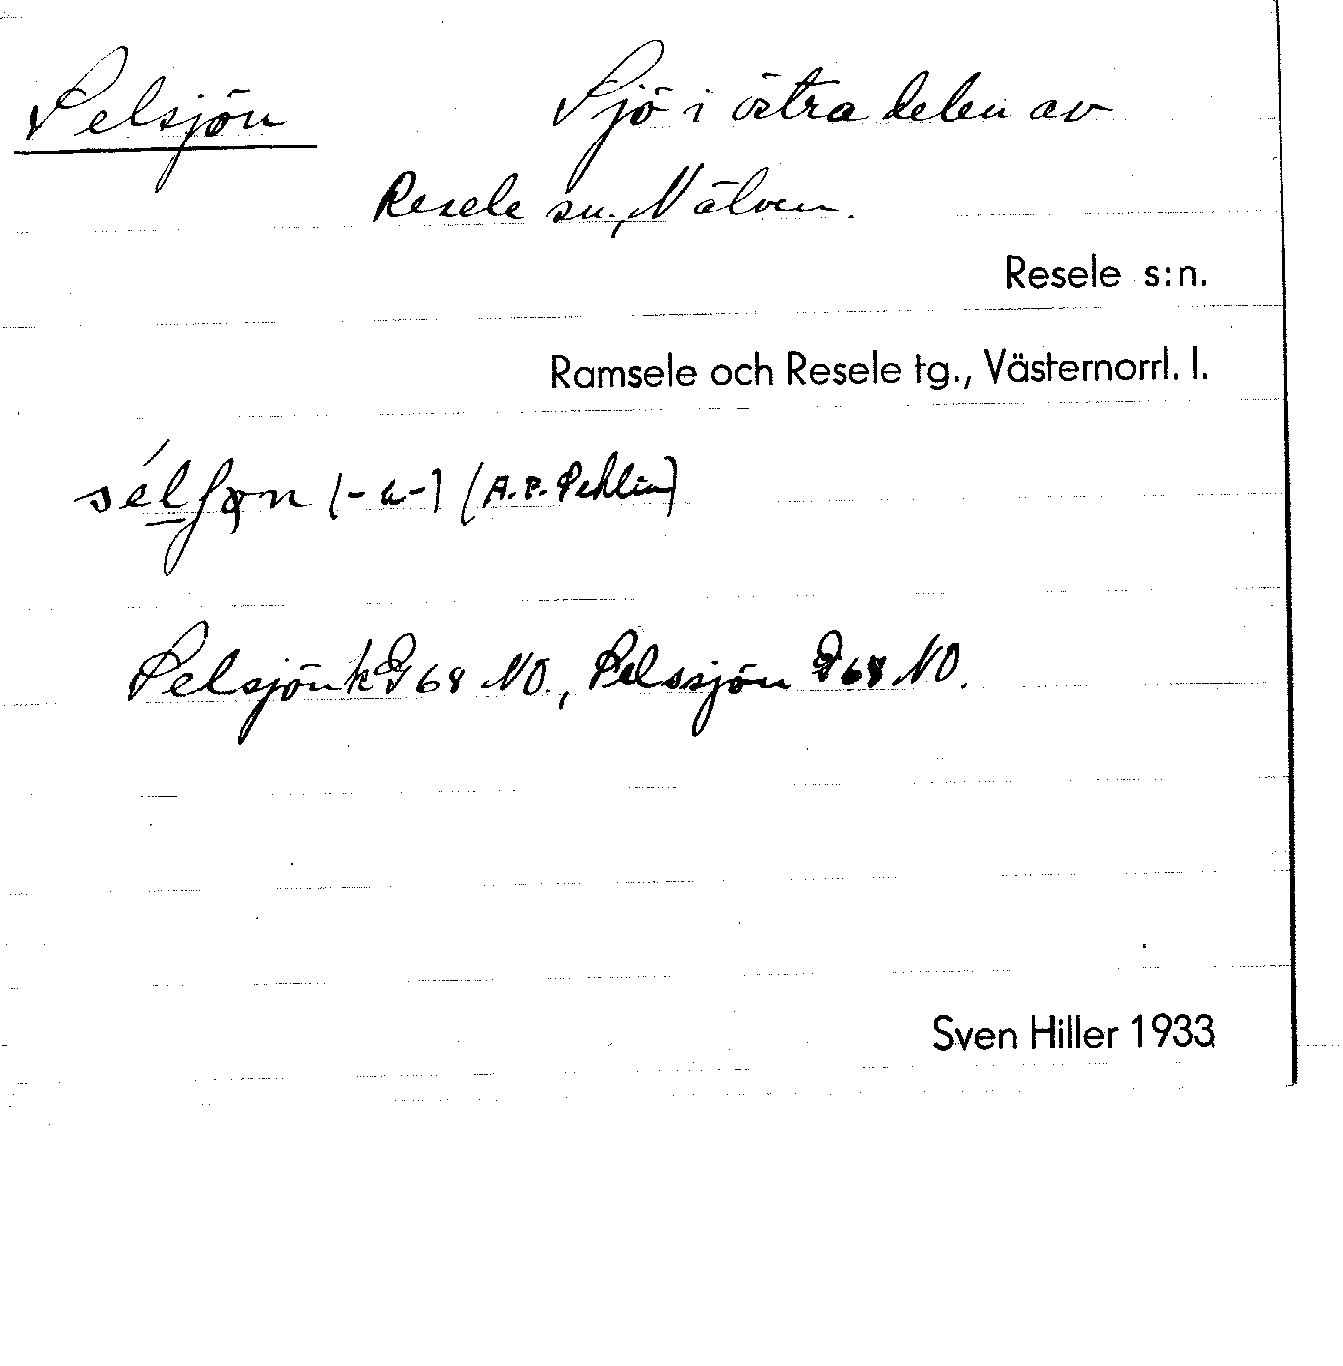 Selsjön Sjö i östra delen av
Resele sn., N älven.
Resele s:n.
Ramsele och Resele tg., Västernorrl. l.
(A. P. Sehlin)
Selsjön k G 68 NO., Selssjön G 68 NO.
Sven Hiller 1933